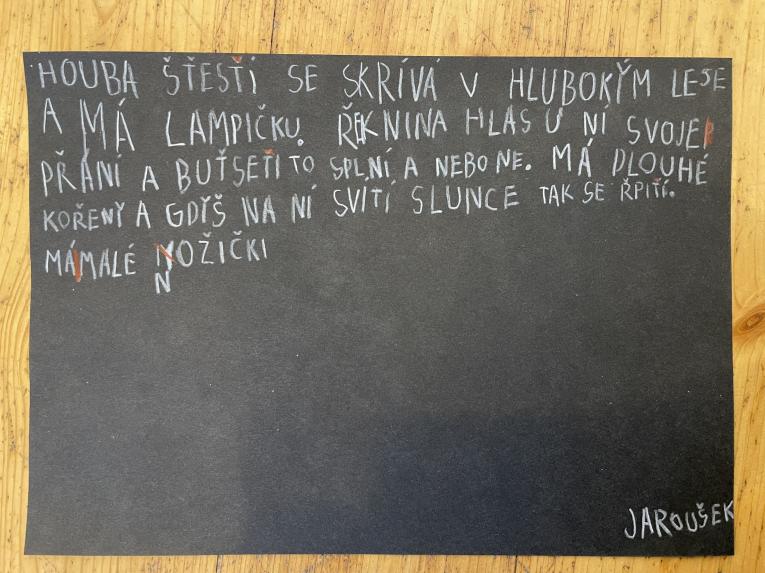 HOUBA ŠŤESŤÍ SE SKRÍVÁ V HLUBOKÝM LESE
A MÁ LAMPIČKU. ŘEKNINA HLAS U NÍ SVOJE
PŘÁNÍ A BUŤSETI TO SPLNÍ A NEBO NE. MÁ DLOUHÉ
KOŘENY A GDYŠ NA NÍ SVÍTÍ SLUNCE TAK SE ŘPITÍ.
MÁ MALÉ NOŽIČKI
JAROUŠEK